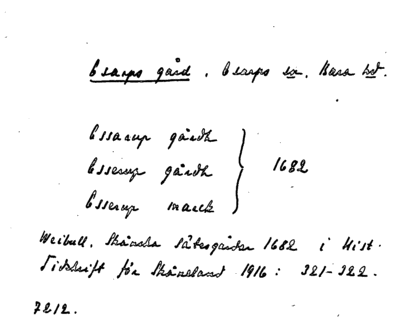 Esarps gård. Esarps sn. Bara hd.
Essarup gårdh
Esserup gårdh } 1682
Esserup marck
Weibull, Skånska sätesgårdar 1682 i Hist.
Tidskrift för Skåneland 1916: 321-322.
7212.